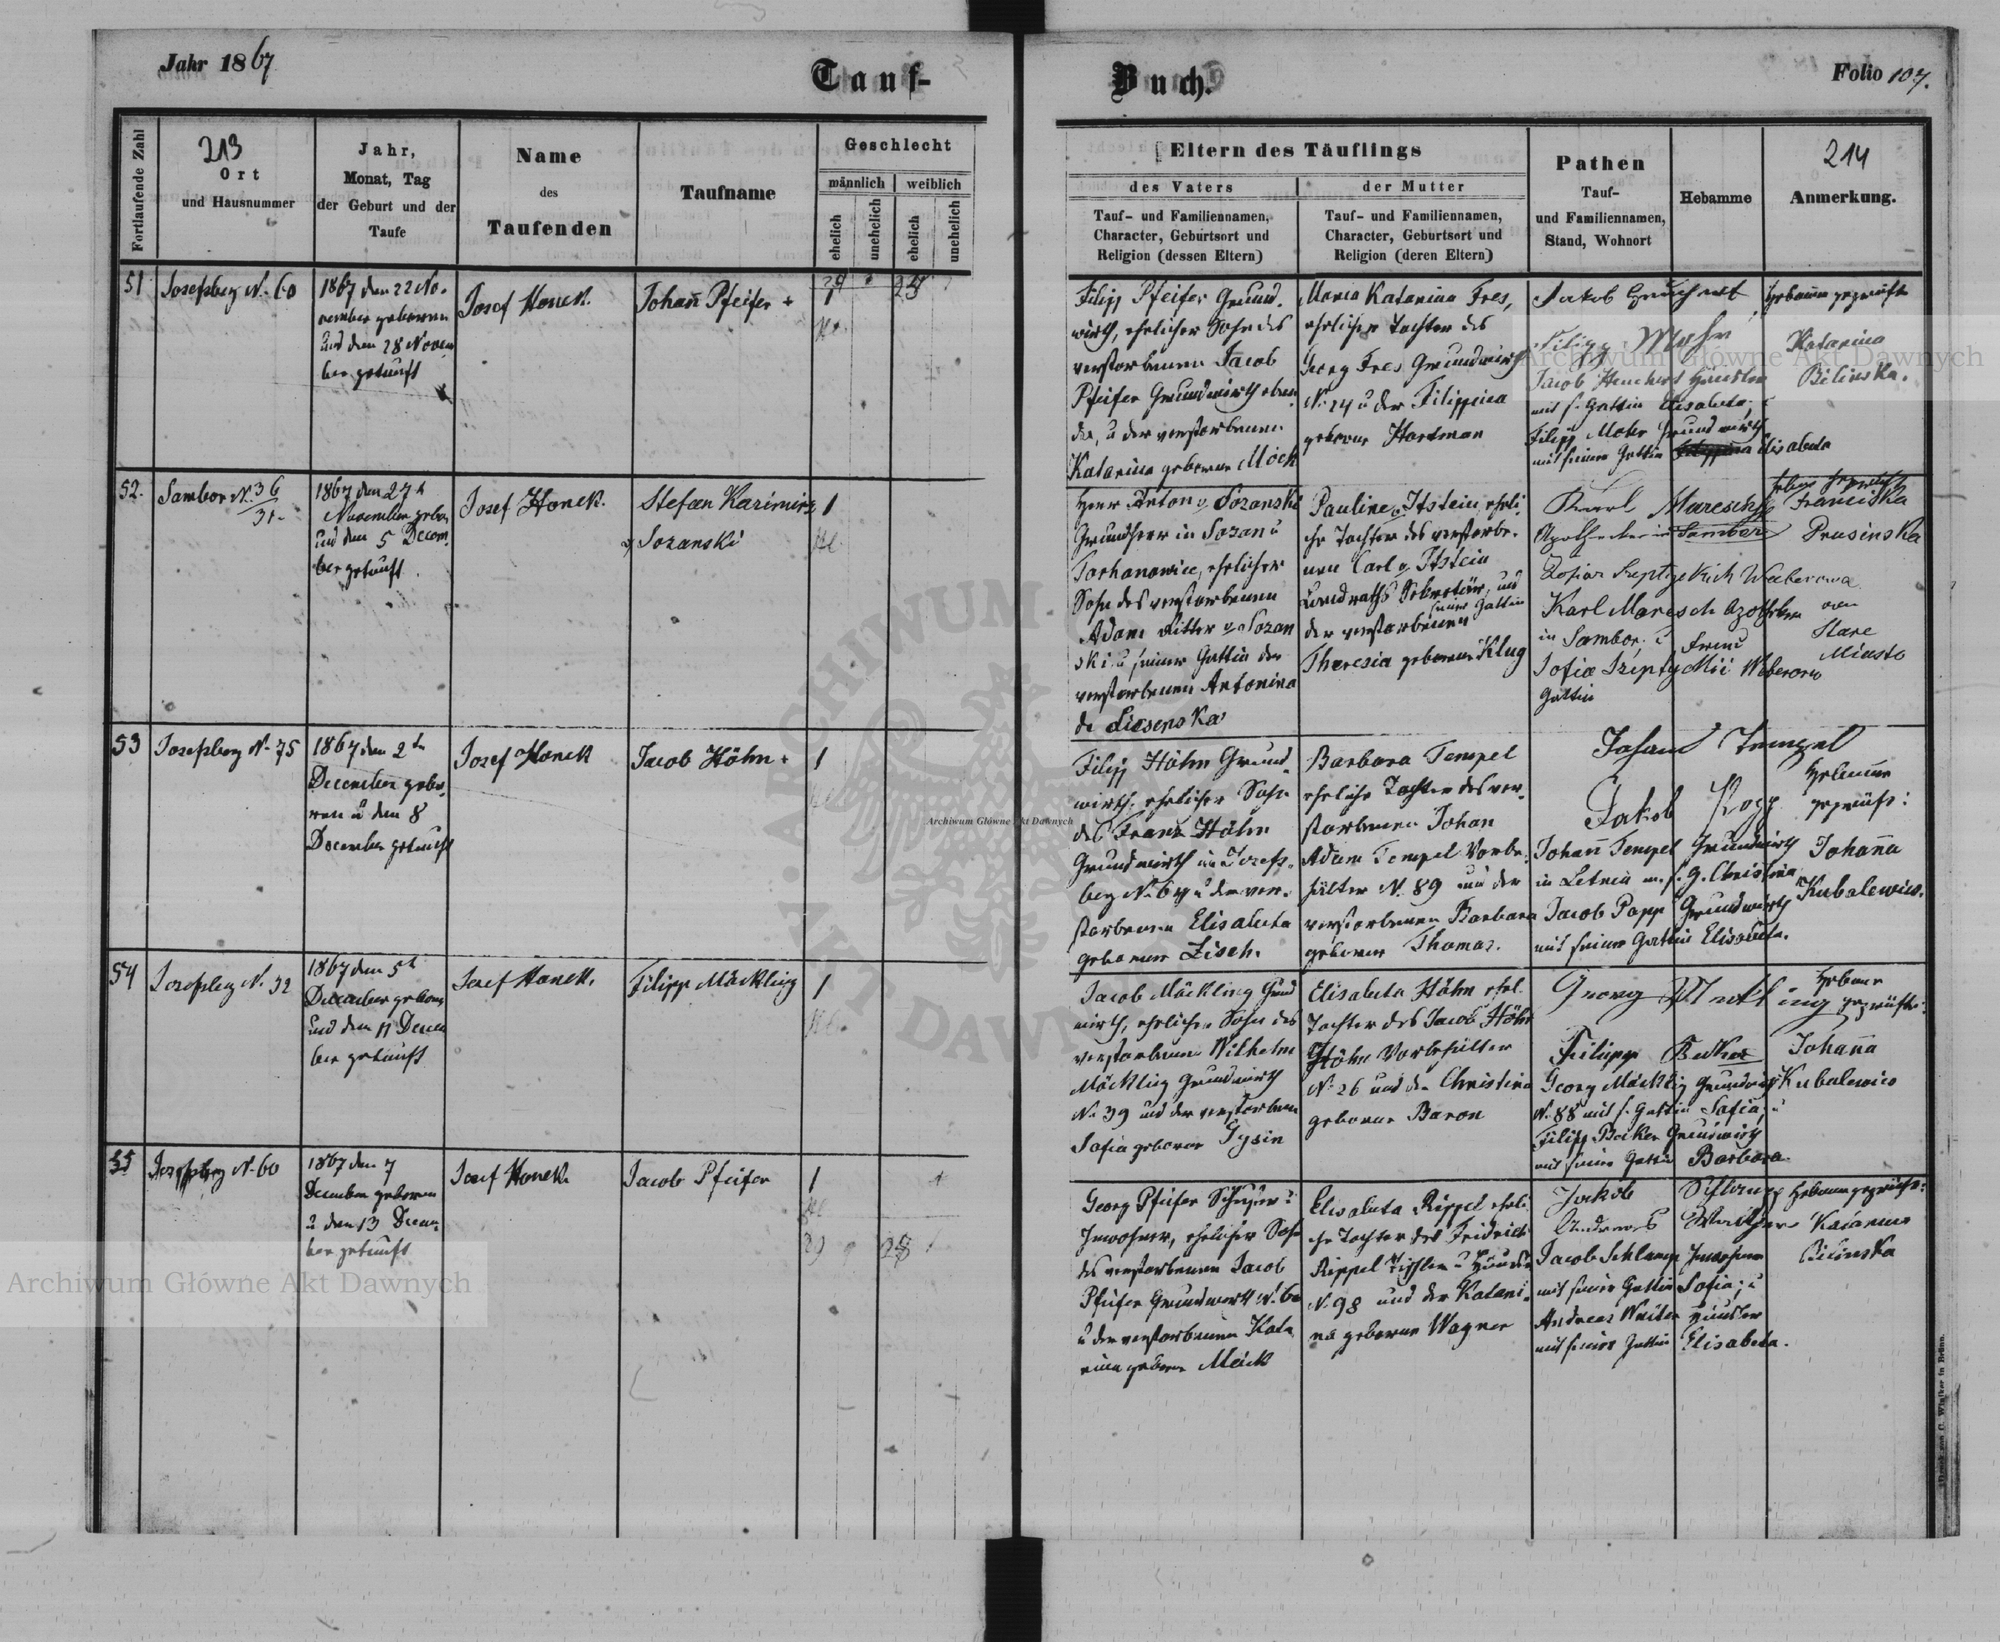 Jahr 1867
Tauf-
Buch.
Folio 107.
Fortlaufende Zahl
213
Ort
und Hausnummer
Jahr,
Monat, Tag
der Geburt und der
Taufe
Name
des
Taufenden
Taufname
Geschlecht
männlich
weiblich
ehelich
unehelich
ehelich
unehelich
Eltern des Täuflings
des Vaters
Tauf- und Familiennamen,
Character, Geburtsort und
Religion (dessen Eltern)
der Mutter
Tauf- und Familiennamen,
Character, Geburtsort und
Religion (deren Eltern)
Pathen
Tauf-
und Familiennamen,
Stand, Wohnort
Hebamme
214
Anmerkung.
51
Josefsberg N. 60
1867 den 22 No-
vember geboren
und den 28 Novem
ber getauft
Josef Honek.
Johañ Pfeifer +
1
Filipp Pfeifer Grund-
wirth, ehelicher Sohn des
verstorbenen Jacob
Pfeifer Grundwirth eben
da, u der verstorbenen
Katarina geborne Möck
Maria Katarina Fres,
eheliche Tochter des
Georg Fres Grundwirth
N. 24 u der Filippina
geborne Hartman
Filipp Mohr
mit s. Gattin Elisabeta, u
Filipp Mohr Grundwirth
mit seiner Gattin Elisabeta
Hebamme geprüfte
Katarina
Bilinska.
52.
Sambor N. 36/31.
1867 den 27t
November gebor
und den 5 Decem
ber getauft.
Josef Honek.
Stefan Kazimirz
v Sozanski
1
Herr Anton v. Sozanski
Grundherr in Sozan u
Torhanowice, ehelicher
Sohn des verstorbenen
Adam Ritter v. Sozan
ski u seiner Gattin der
verstorbenen Antonina
Pauline v. Itstein, eheli-
che Tochter des verstorbe-
nen Carl v. Itstein
Landraths Sekretär, und
seiner Gattin
der verstorbenen
Theresia geborne Klug
Karl Maresch
Apotheker in Sambor
Karl Maresch Apotheker
in Sambor, u
Gattin
Franciska
Prusinska
Stare
Miasto
53
Josefsberg N. 75
1867 den 2tn
December gebo-
ren u den 8
December getauft
Josef Honek
Jacob Höhn +
1
Filipp Höhn Grund-
wirth, ehelicher Sohn
des Franz Höhn
Grundwirth in Josefs-
berg N. 64 u der ver-
storbenen Elisabeta
geborne Zisch.
Barbara Tempel
eheliche Tochter des ver-
storbenen Johan
Adam Tempel Vorbe-
hälter N. 89 und der
verstorbenen Barbara
geborne Thomas.
Johann Tempel
Jakob Popp
Johañ Tempel Grundwirth
in Letnia m. s. G. Christina
Jacob Popp Grundwirth
mit seiner Gattin Elisabeta.
Hebamme
geprüft:
Johaña
Kubalewicz.
54
Josefsberg N. 32
1867 den 5t
December geboren
und den 11 Decem
ber getauft
Josef Honek.
Filipp Mäckling
1
Jacob Mäckling Grund
wirth, ehelicher Sohn des
verstorbenen Wilhelm
Mäckling Grundwirth
N. 39 und der verstorbenen
Sofia geborne Gysin
Elisabeta Höhn ehel.
Tochter des Jacob Höhn
Höhn Vorbehälter
N. 26 und der Christina
geborne Baron
Filipp Becker
Georg Mäckling Grundwirth
N. 88 mit s. Gattin Sofia, u
Filipp Becker Grundwirth
mit seiner Gattin Barbara
Hebamme
geprüfte:
Johañа
Kubalewicz
55
Josefsberg N. 60
1867 den 7
December geboren
u den 13 Decem-
ber getauft
Josef Honek
Jacob Pfeifer
1
29
28
Georg Pfeifer
Inwohner, ehelicher Sohn
des verstorbenen Jacob
Pfeifer Grundwirth N. 60
u der verstorbenen Kata
rina geborne Möck
Elisabeta Rippel eheli-
che Tochter des Fridrich
Rippel Tischler u Häusler
N. 98 und der Katari-
na geborne Wagner
Jakob Schlamp
Jacob Schlamp Inwohner
mit seiner Gattin Sofia; u
Andreas Walter Häusler
mit seiner Gattin Elisabeta.
Hebamme geprüfte:
Katarina
Bilinska
Druck von C. Winiker in Brünn.
Archiwum Główne Akt Dawnych
Archiwum Główne Akt Dawnych
Archiwum Główne Akt Dawnych